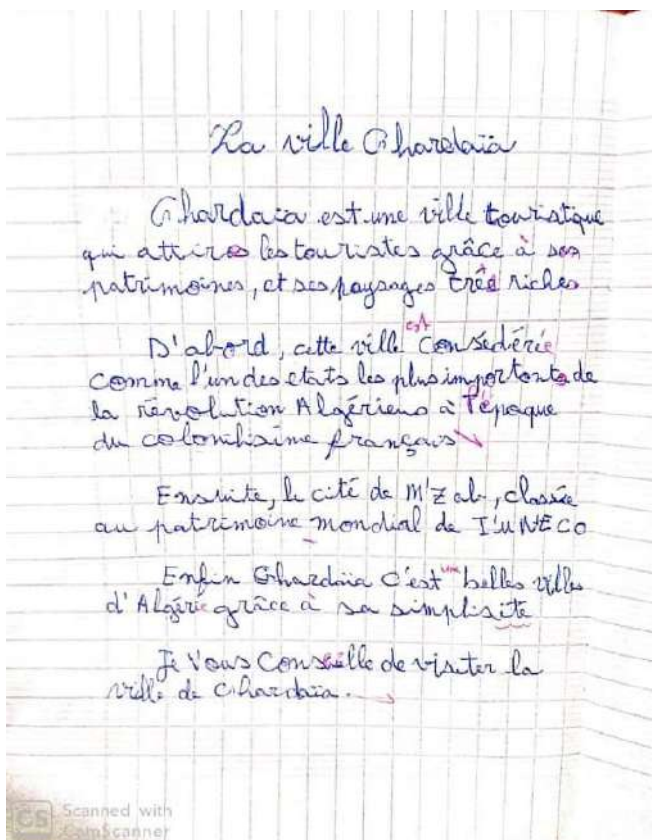 La ville Ghardaïa
Ghardaïa est une ville touristique
qui attires les touristes grâce à ses
patrimoines, et ses paysages très riches
D'abord, cette ville est consédérée
comme l'un des etats les plus importants de
la révolution Algériens à l'époque
du colonihisime français
Ensuite, le cité de M'Zab, classée
au patrimoine mondial de I'UNECO
Enfin Ghardaïa C'est une belles villes
d'Algérie grâce à sa simplisité
Je Vous Conseille de visiter la
ville de Ghardaïa.
CS Scanned with
CamScanner